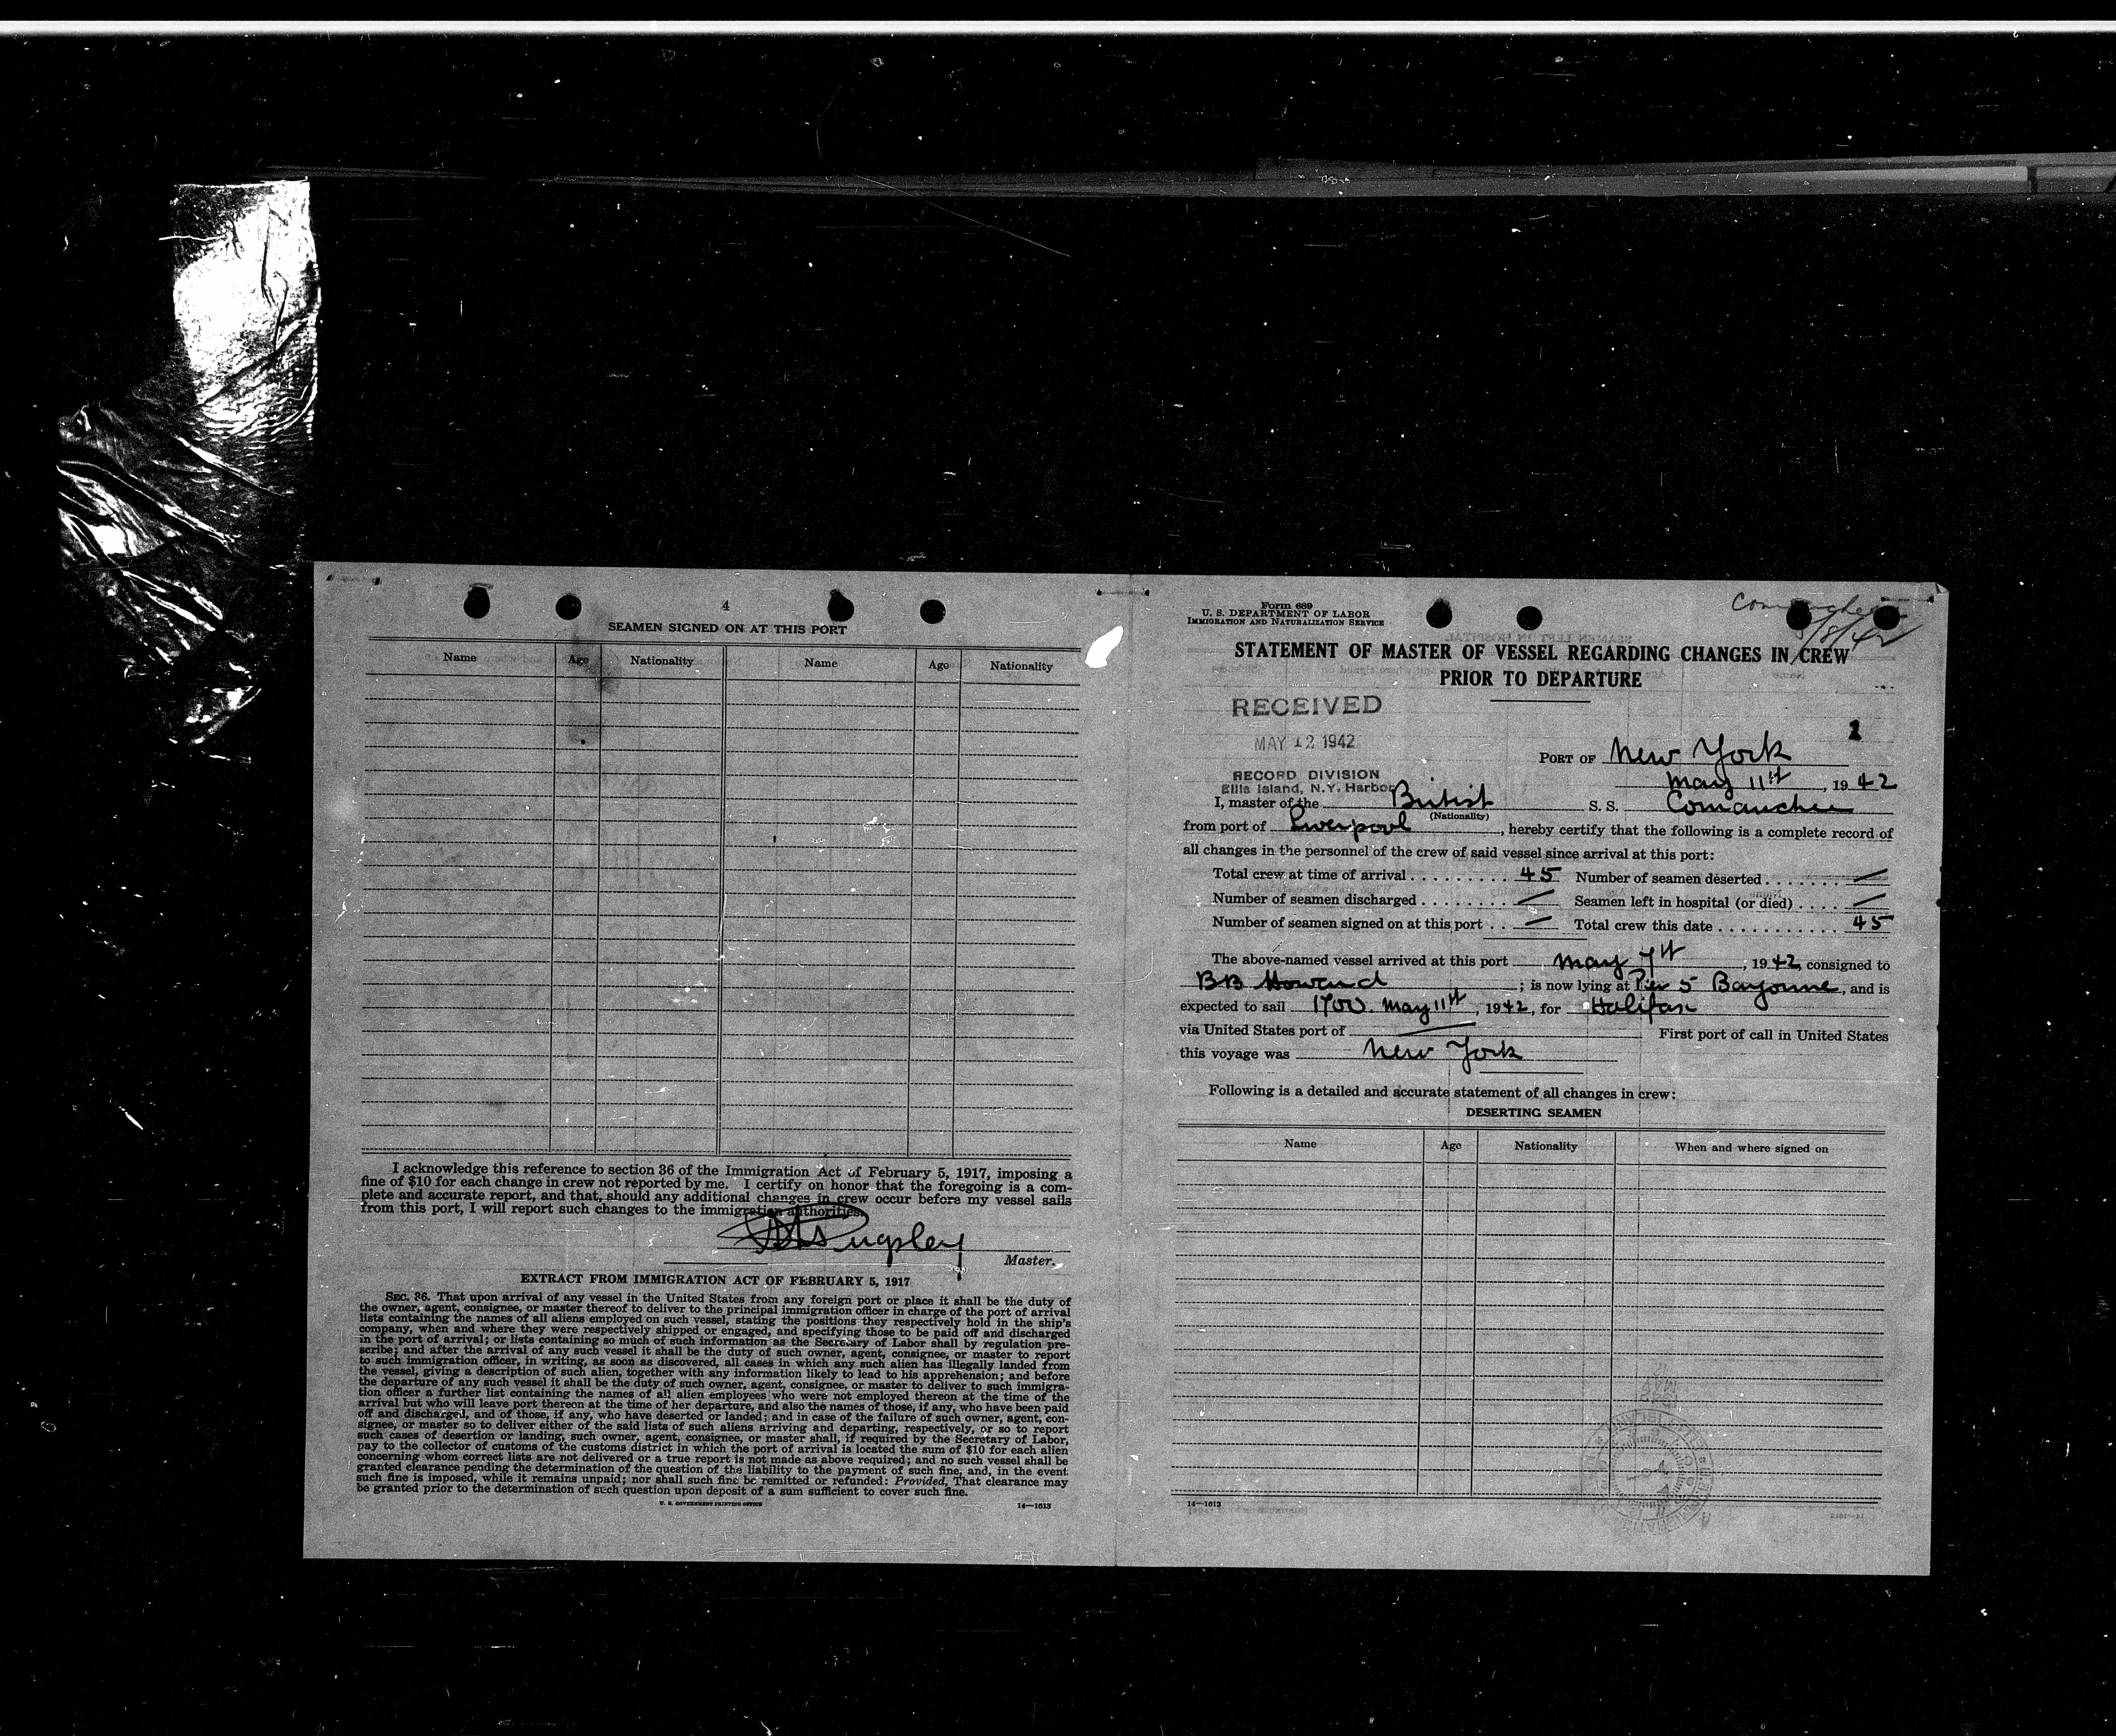 4
SEAMEN SIGNED ON AT THIS PORT
Name Age Nationality Name Age Nationality
I acknowledge this reference to section 36 of the Immigration Act of February 5, 1917, imposing a
fine of $10 for each change in crew not reported by me. I certify on honor that the foregoing is a com-
plete and accurate report, and that, should any additional changes in crew occur before my vessel sails
from this port, I will report such changes to the immigration authorities.
Pugsley
Master.
EXTRACT FROM IMMIGRATION ACT OF FEBRUARY 5, 1917
SEC. 36. That upon arrival of any vessel in the United States from any foreign port or place it shall be the duty of
the owner, agent, consignee, or master thereof to deliver to the principal immigration officer in charge of the port of arrival
lists containing the names of all aliens employed on such vessel, stating the positions they respectively hold in the ship's
company, when and where they were respectively shipped or engaged, and specifying those to be paid off and discharged
in the port of arrival; or lists containing so much of such information as the Secretary of Labor shall by regulation pre-
scribe; and after the arrival of any such vessel it shall be the duty of such owner, agent, consignee, or master to report
to such immigration officer, in writing, as soon as discovered, all cases in which any such alien has illegally landed from
the vessel, giving a description of such alien, together with any information likely to lead to his apprehension; and before
the departure of any such vessel it shall be the duty of such owner, agent, consignee, or master to deliver to such immigra-
tion officer a further list containing the names of all alien employees who were not employed thereon at the time of the
arrival but who will leave port thereon at the time of her departure, and also the names of those, if any, who have been paid
off and discharged, and of those, if any, who have deserted or landed; and in case of the failure of such owner, agent, con-
signee, or master so to deliver either of the said lists of such aliens arriving and departing, respectively, or so to report
such cases of desertion or landing, such owner, agent, consignee, or master shall, if required by the Secretary of Labor,
pay to the collector of customs of the customs district in which the port of arrival is located the sum of $10 for each alien
concerning whom correct lists are not delivered or a true report is not made as above required; and no such vessel shall be
granted clearance pending the determination of the question of the liability to the payment of such fine, and, in the event
such fine is imposed, while it remains unpaid; nor shall such fine be remitted or refunded: Provided, That clearance may
be granted prior to the determination of such question upon deposit of a sum sufficient to cover such fine.
U. S. GOVERNMENT PRINTING OFFICE 14—1613
Form 689
U. S. DEPARTMENT OF LABOR
IMMIGRATION AND NATURALIZATION SERVICE
5/8/42
STATEMENT OF MASTER OF VESSEL REGARDING CHANGES IN CREW
PRIOR TO DEPARTURE
RECEIVED
MAY 12 1942
RECORD DIVISION
Ellis Island, N.Y. Harbor
PORT OF New York
May 11th, 1942
I, master of the British S. S. Comanchee
(Nationality)
from port of Liverpool, hereby certify that the following is a complete record of
all changes in the personnel of the crew of said vessel since arrival at this port:
Total crew at time of arrival ......... 45 Number of seamen deserted ....... —
Number of seamen discharged ........ — Seamen left in hospital (or died) .... —
Number of seamen signed on at this port .. — Total crew this date ........... 45
The above-named vessel arrived at this port May 7th, 1942, consigned to
BB Howard ; is now lying at Pier 5 Bayonne, and is
expected to sail 1700. May 11th, 1942, for Halifax
via United States port of — First port of call in United States
this voyage was New York
Following is a detailed and accurate statement of all changes in crew:
DESERTING SEAMEN
Name Age Nationality When and where signed on
14—1613